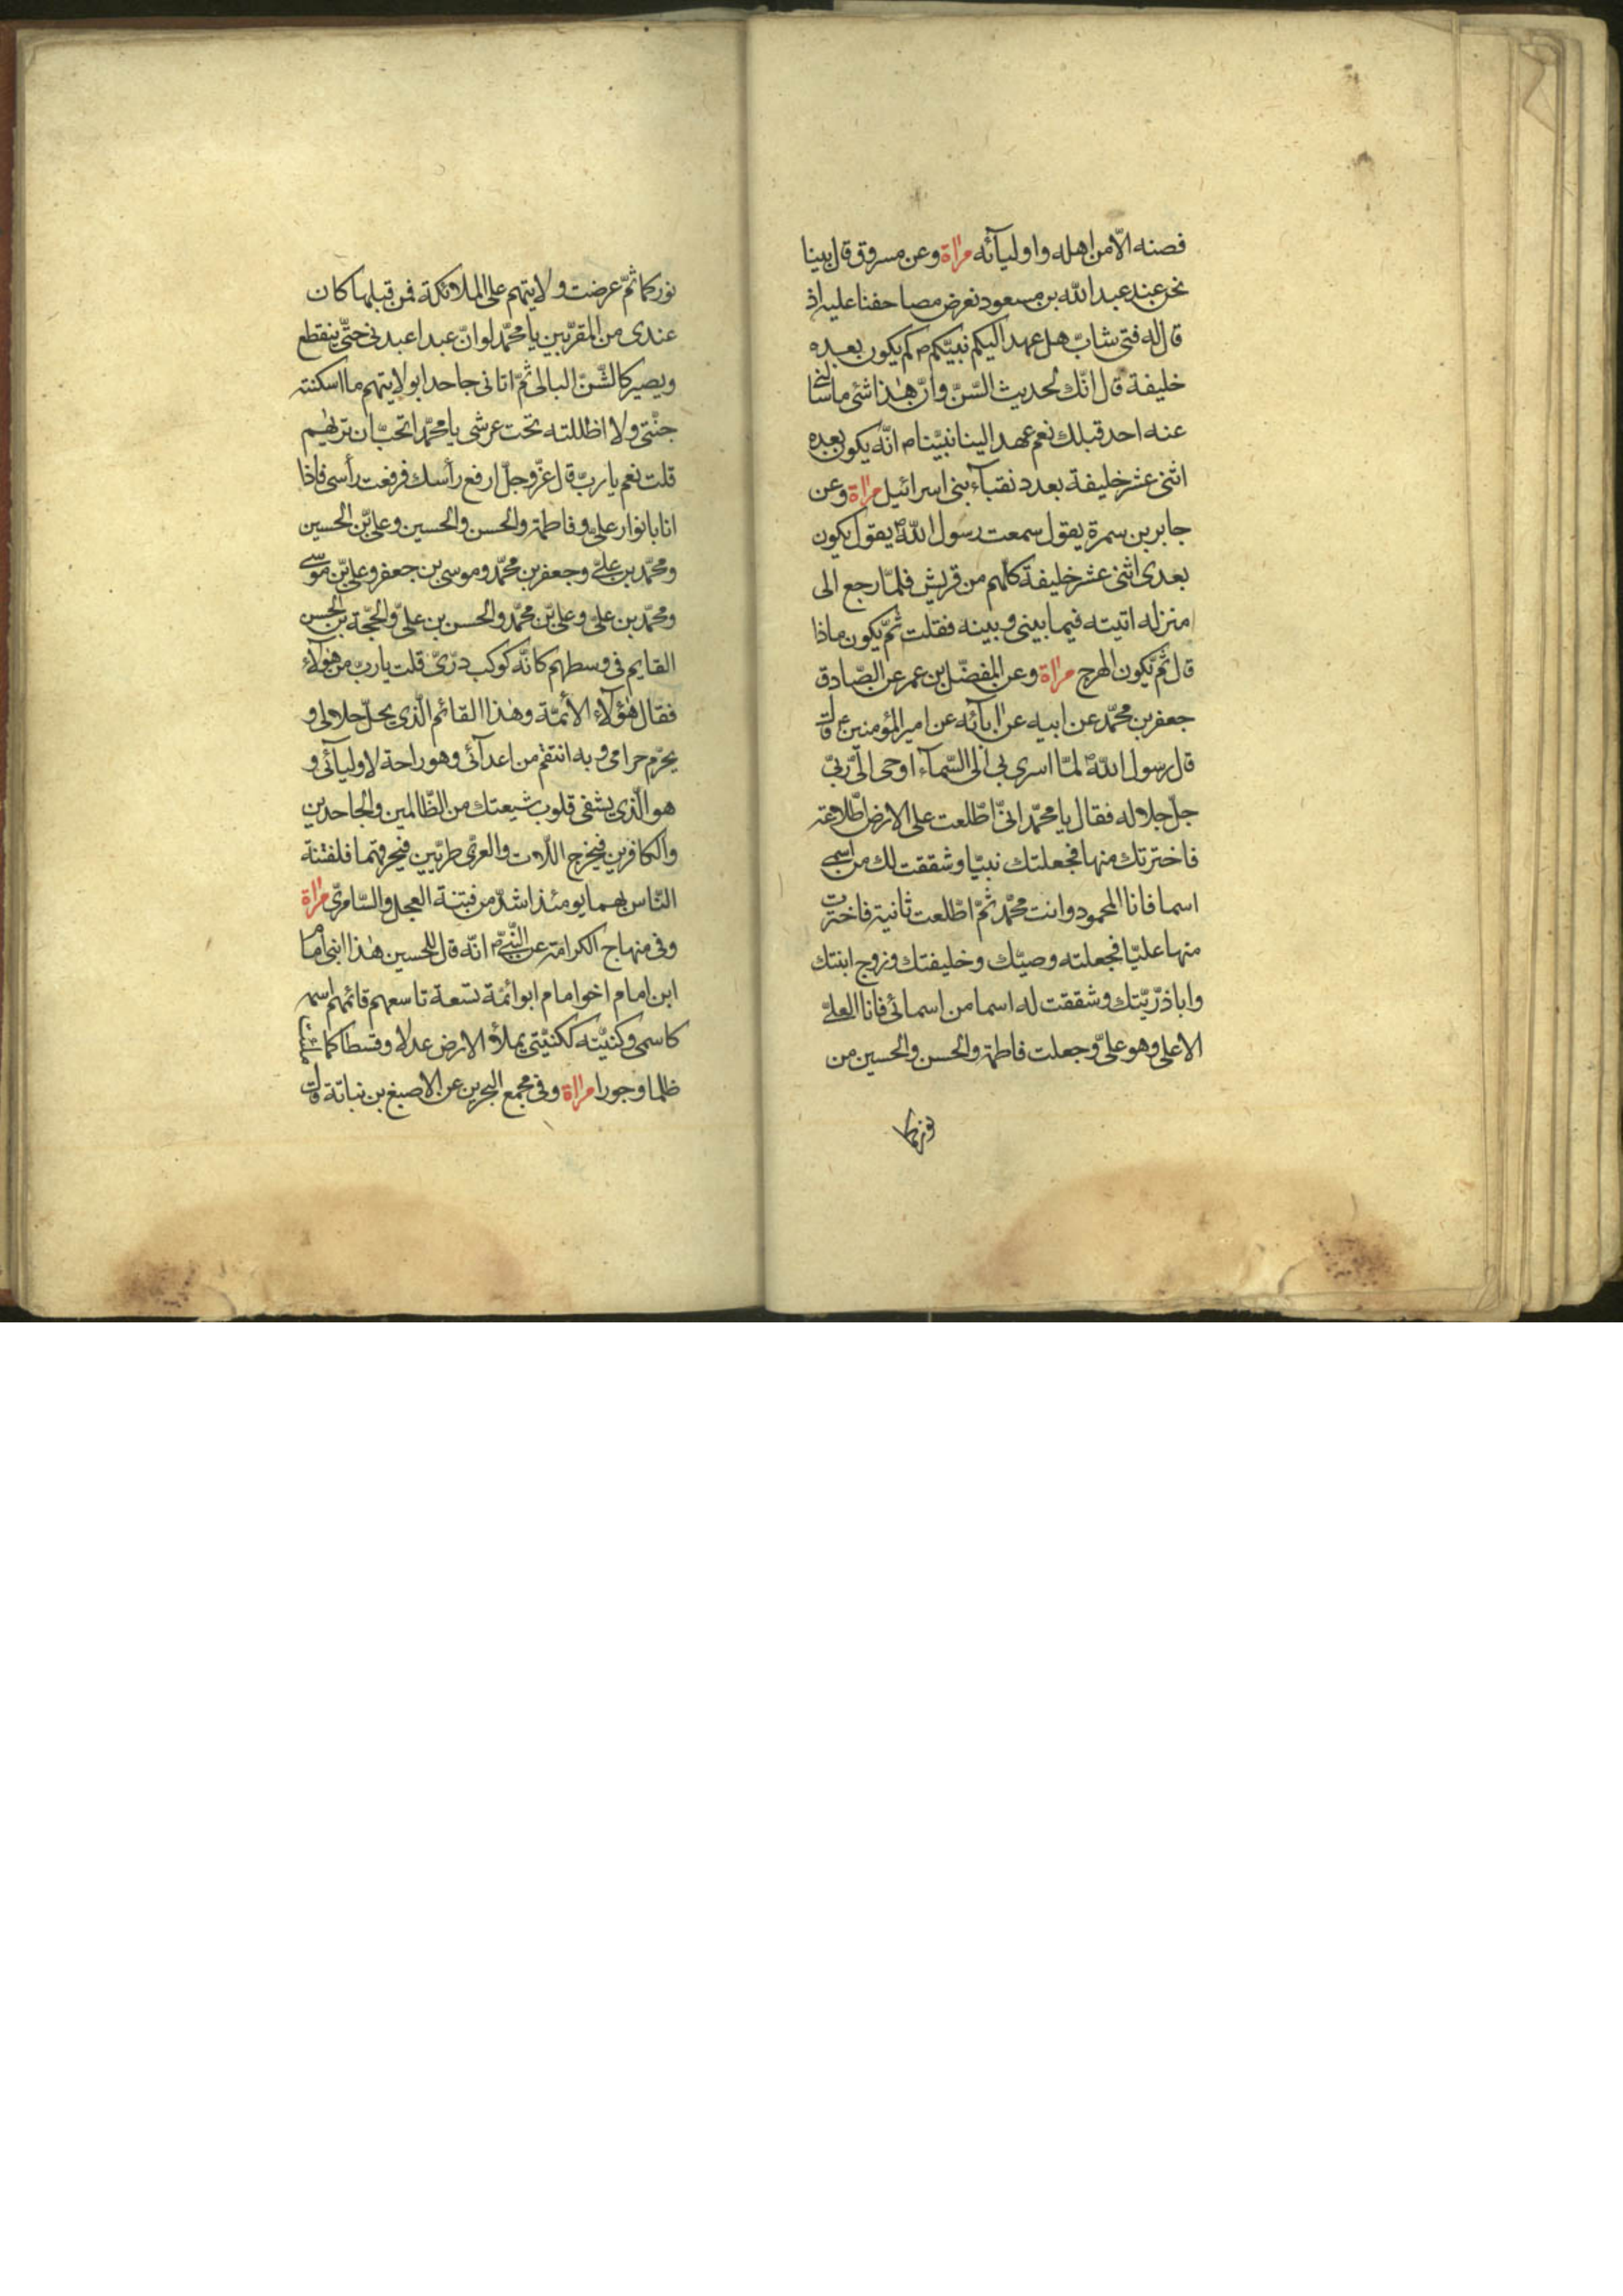 فصنه الّا من اهله واوليآئه مرٰاة وعن مسروق قال بينا
نحن عند عبد الله بن مسعود نعرض مصاحفنا عليه اذ
قال له فتى شابّ هل عهد اليكم نبيّكم ص كم يكون بعده
خليفة قال انّك لحديث السّنّ وانّ هٰذا شئ ما سألنى
عنه احد قبلك نعم عهد الينا نبيّنا ص انّه يكون بعده
اثنى عشر خليفة بعدد نقبآء بنى اسرائيل مرٰاة وعن
جابر بن سمرة يقول سمعت رسول اللهؐ يقول يكون
بعدى اثنى عشر خليفة كلّهم من قريش فلمّا رجع الى
منزله اتيته فيما بينى و بينه فقلت ثمّ يكون ماذا
قال ثمّ يكون الهرج مرٰاة وعن المفضّل بن عمر عن الصّادق
جعفر بن محمّد عن ابيه عن اٰبآئه عن امير المؤمنين ع قال
قال رسول اللهؐ لمّا اسرى بى الى السّمآء اوحى الىّ ربّى
جلّ جلاله فقال يا محمّد انّى اطّلعت على الارض اطّلاعة
فاخترتك منها فجعلتك نبيّا وشققت لك من اسمى
اسما فانا المحمود وانت محمّد ثمّ اطّلعت ثانية فاخترت
منها عليّا فجعلته وصيّك وخليفتك وزوج ابنتك
وابا ذرّيّتك وشققت له اسما من اسمائى فانا العلىّ
الاعلى وهو علىّ وجعلت فاطمة والحسن والحسين من
نوركما
نوركما ثمّ عرضت ولايتهم على الملائكة فمن قبلها كان
عندى من المقرّبين يا محمّد لو انّ عبدا عبدنى حتّى ينقطع
ويصير كالشّنّ البالى ثمّ اتانى جاحدا بولايتهم ما اسكنته
جنّتى ولا اظللته تحت عرشى يا محمّد اتحبّ ان تريٰهم
قلت نعم يا ربّ قال عزّ وجلّ ارفع رأسك فرفعت رأسى فاذا
انا بانوار علىّ وفاطمة والحسن والحسين وعلىّ بن الحسين
ومحمّد بن علىّ وجعفر بن محمّد وموسى بن جعفر وعلىّ بن موسى
ومحمّد بن علىّ وعلىّ بن محمّد والحسن بن علىّ والحجّة بن الحسن
القايم فى وسطهم كانّه كوكب درّىّ قلت يا ربّ من هٰؤلآء
فقال هٰؤلآء الأئمّة وهٰذا القائم الّذى يحلّ حلالى و
يحرّم حرامى وبه انتقم من اعدآئى وهو راحة لاوليآئى و
هو الّذى يشفى قلوب شيعتك من الظّالمين والجاحدين
والكافرين فيخرج اللّات والعزّى طريّين فيحرقهما فلفتنة
النّاس بهما يومئذ اشدّ من فتنة العجل والسّامرىّ مرٰاة
وفى منهاج الكرامة عن النّبىّ ص انّه قال للحسين هٰذا ابنى امام
ابن امام اخو امام ابو ائمّة تسعة تاسعهم قائمهم اسمه
كاسمى وكنيّته ككنيّتى يملأ الارض عدلا وقسطا كما ملئت
ظلما وجورا مرٰاة وفى مجمع البحرين عن الاصبغ بن نباتة قال